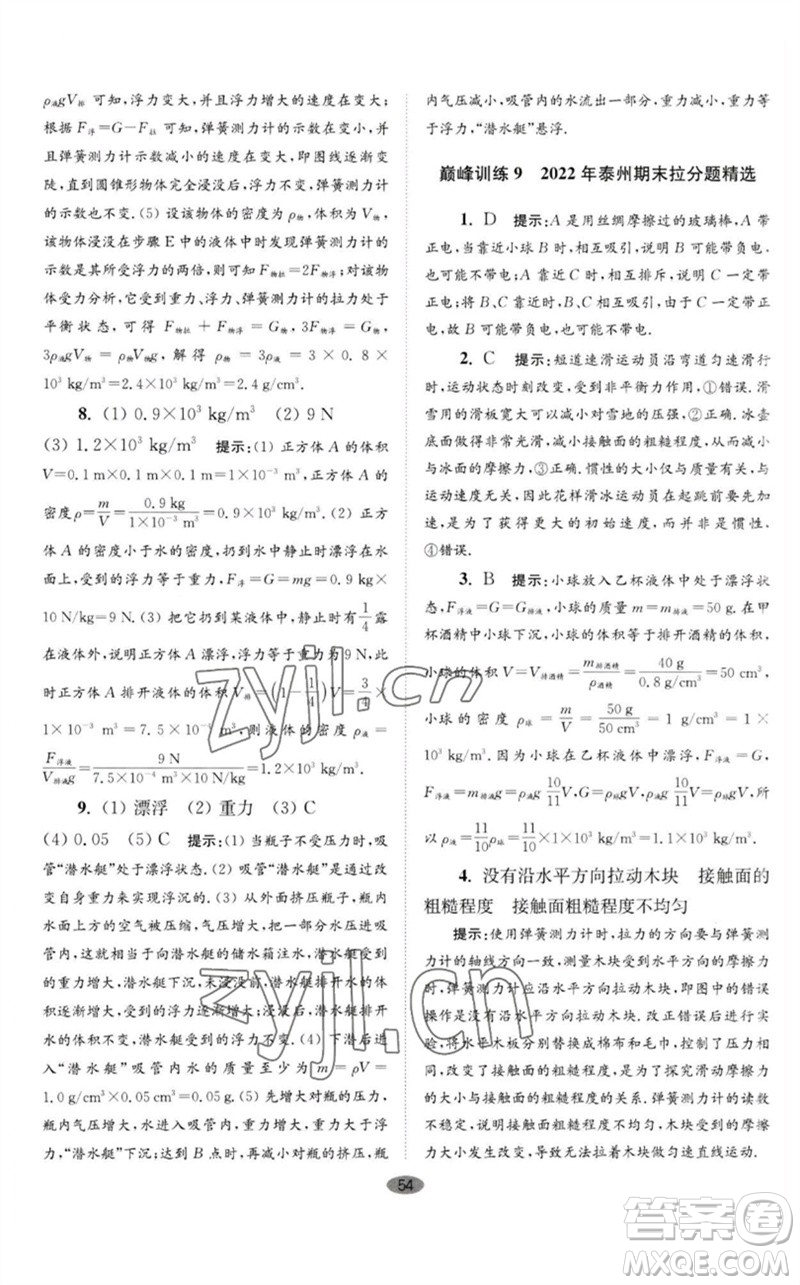 ρ液gV排 可知，浮力变大，并且浮力增大的速度在变大；
根据 F浮=G-F拉 可知，弹簧测力计的示数在变小，并
且弹簧测力计示数减小的速度在变大，即图线逐渐变
陡，直到圆锥形物体完全浸没，浮力不变，弹簧测力计
的示数也不变. (5) 设该物体的密度为 ρ物，体积为 V物，
该物体浸没在步骤 E 中的液体中时发现弹簧测力计的
示数是其所受浮力的两倍，则可知 F物拉=2F物浮；对该物
体受力分析，它受到重力、浮力、弹簧测力计的拉力处于
平衡状态，可得 F物拉 + F物浮 = G物，3F物浮 = G物，
3ρ液gV物 = ρ物gV物，解得 ρ物 = 3ρ液 = 3 × 0.8 ×
10³ kg/m³=2.4×10³ kg/m³.
8. (1) 0.9×10³ kg/m³ (2) 9 N
(3) 1.2×10³ kg/m³ 提示：(1) 正方体 A 的体积
V=0.1 m×0.1 m×0.1 m=1×10⁻³ m³，正方体 A 的
密度 ρ=m/V=0.9 kg/(1×10⁻³ m³)=0.9×10³ kg/m³. (2) 正方
体 A 的密度小于水的密度，扔到水中静止时漂浮在水
面上，受到的浮力等于重力，F浮=G=mg=0.9 kg×
10 N/kg=9 N. (3) 把它扔到某液体中，静止时有 1/4 露
在液体外，正方体 A 漂浮，受到的浮力等于重力为 9 N，此
时正方体 A 排开液体的体积 V排=(1-1/4)V=3/4×
1×10⁻³ m³=7.5×10⁻⁴ m³，则液体的密度 ρ液=
F浮液/(V排液g)=9 N/(7.5×10⁻⁴ m³×10 N/kg)=1.2×10³ kg/m³.
9. (1) 漂浮 (2) 重力 (3) C
(4) 0.05 (5) C 提示：(1) 当瓶子不受压力时，吸
管“潜水艇”处于漂浮状态. (2) 吸管“潜水艇”是靠改变
自身重力来实现浮沉的. (3) 从外面挤压瓶身，瓶内
水面上方的空气被压缩，气压变大，水就会被压进吸
管中，相当于向潜水艇的水储箱注水，“潜水艇”自身
的重力增大，“潜水艇”下沉，未浸没前，“潜水艇”的体
积逐渐增大，受到的浮力变大，“潜水艇”排开水的体
积逐渐增大；浸没后，“潜水艇”排开
水的体积不变，受到的浮力不变. (4) 下潜后进
入“潜水艇”吸管内水的质量至少为 m = ρV =
1.0 g/cm³×0.05 cm³=0.05 g. (5) 先增大对瓶的压力，
瓶内气压变大，吸管内进水，重力增大，重力大于浮
力，“潜水艇”下沉；达到 B 点处时，减小对瓶的挤压，瓶
内气压减小，吸管内的水流出一部分，重力减小，重力等
于浮力，“潜水艇”悬浮.
巅峰训练 9 2022 年泰州期末拉分题精选
1. D 提示：A 是用丝绸摩擦过的玻璃棒，A 带
正电，当靠近小球 B 时，相互吸引，说明 B 可能带负电，
也可能不带电；靠近小球 C 时，相互排斥，说明 C 一定
带正电；将 B、C 靠近时，B、C 相互吸引，由于 C 一定带
正电，故 B 可能带负电，也可能不带电.
2. C 提示：短道速滑运动员沿弯道匀速滑行
时，运动状态时刻改变，受到非平衡力作用，①错误. 滑
雪用的滑板宽大可减小对雪地的压强，②正确. 冰壶
底部做得非常光滑，减小接触面的粗糙程度，从而减小
与冰面的摩擦力，③正确. 惯性的大小仅与质量有关，
与运动速度无关，因此花样滑冰运动员起跳前先要加
速，是为了获得更大的初始速度，而并非是惯性.
④错误.
3. B 提示：小球放入乙杯液体中处于漂浮状
态，F浮液=G=G排液，小球的质量 m=m排液=50 g. 在甲
杯酒精中小球下沉，小球的体积等于排开酒精的体积，
小球的体积 V=V排酒精=m排酒精/ρ酒精=40 g/(0.8 g/cm³)=50 cm³，
小球的密度 ρ球=m/V=50 g/50 cm³=1 g/cm³=1×
10³ kg/m³. 因为小球在乙杯液体中漂浮，F浮=G，
F浮液=ρ液g 10/11 V=G=mg=ρ球gV，ρ液g 10/11 V=ρ球gV，所
以 ρ液=11/10 ρ球=11/10×1×10³ kg/m³=1.1×10³ kg/m³.
4. 没有沿水平方向拉动木块 接触面的
粗糙程度 接触面粗糙程度不均匀
提示：使用弹簧测力计时，拉力的方向要与弹簧测
力计的轴线方向一致，测量木块受到水平方向的摩擦力
时，弹簧测力计应沿水平方向拉动木块，即图中的错误
操作是没有沿水平方向拉动木块. 改正错误后进行实
验，将水平木板分别换成棉布和毛巾，实验中改变了接
触面的粗糙程度，是为了探究滑动摩擦力的大小与接
触面的粗糙程度的关系. 实验中弹簧测力计的读数
不稳定，说明接触面的粗糙程度不均匀，木块受到的摩擦
力大小发生改变，导致无法拉着木块做匀速直线运动.
54
zyjl.cn
zyjl.cn
答案圈
MXQE.COM